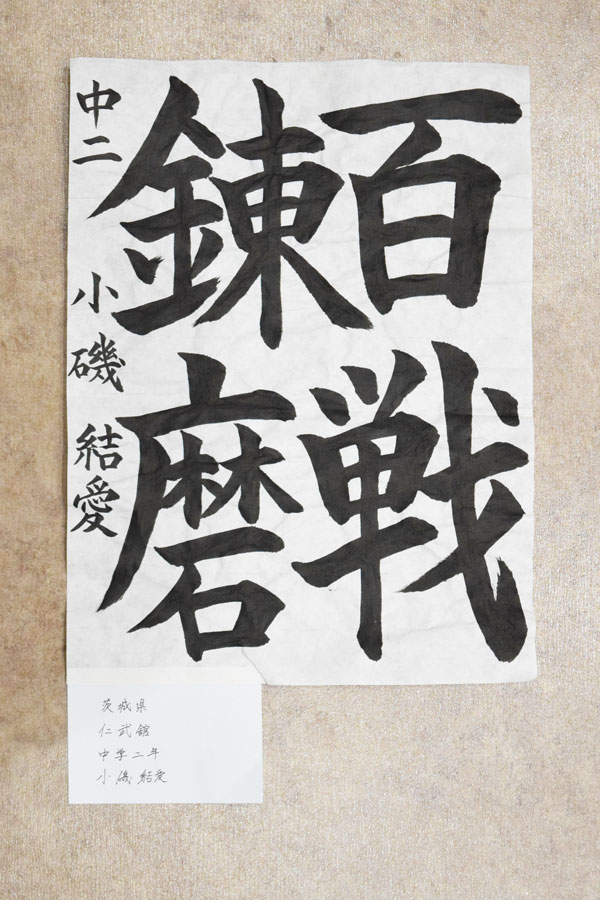 百戦
錬磨
中二 小磯 結愛
茨城県
仁武館
中学二年
小磯 結愛